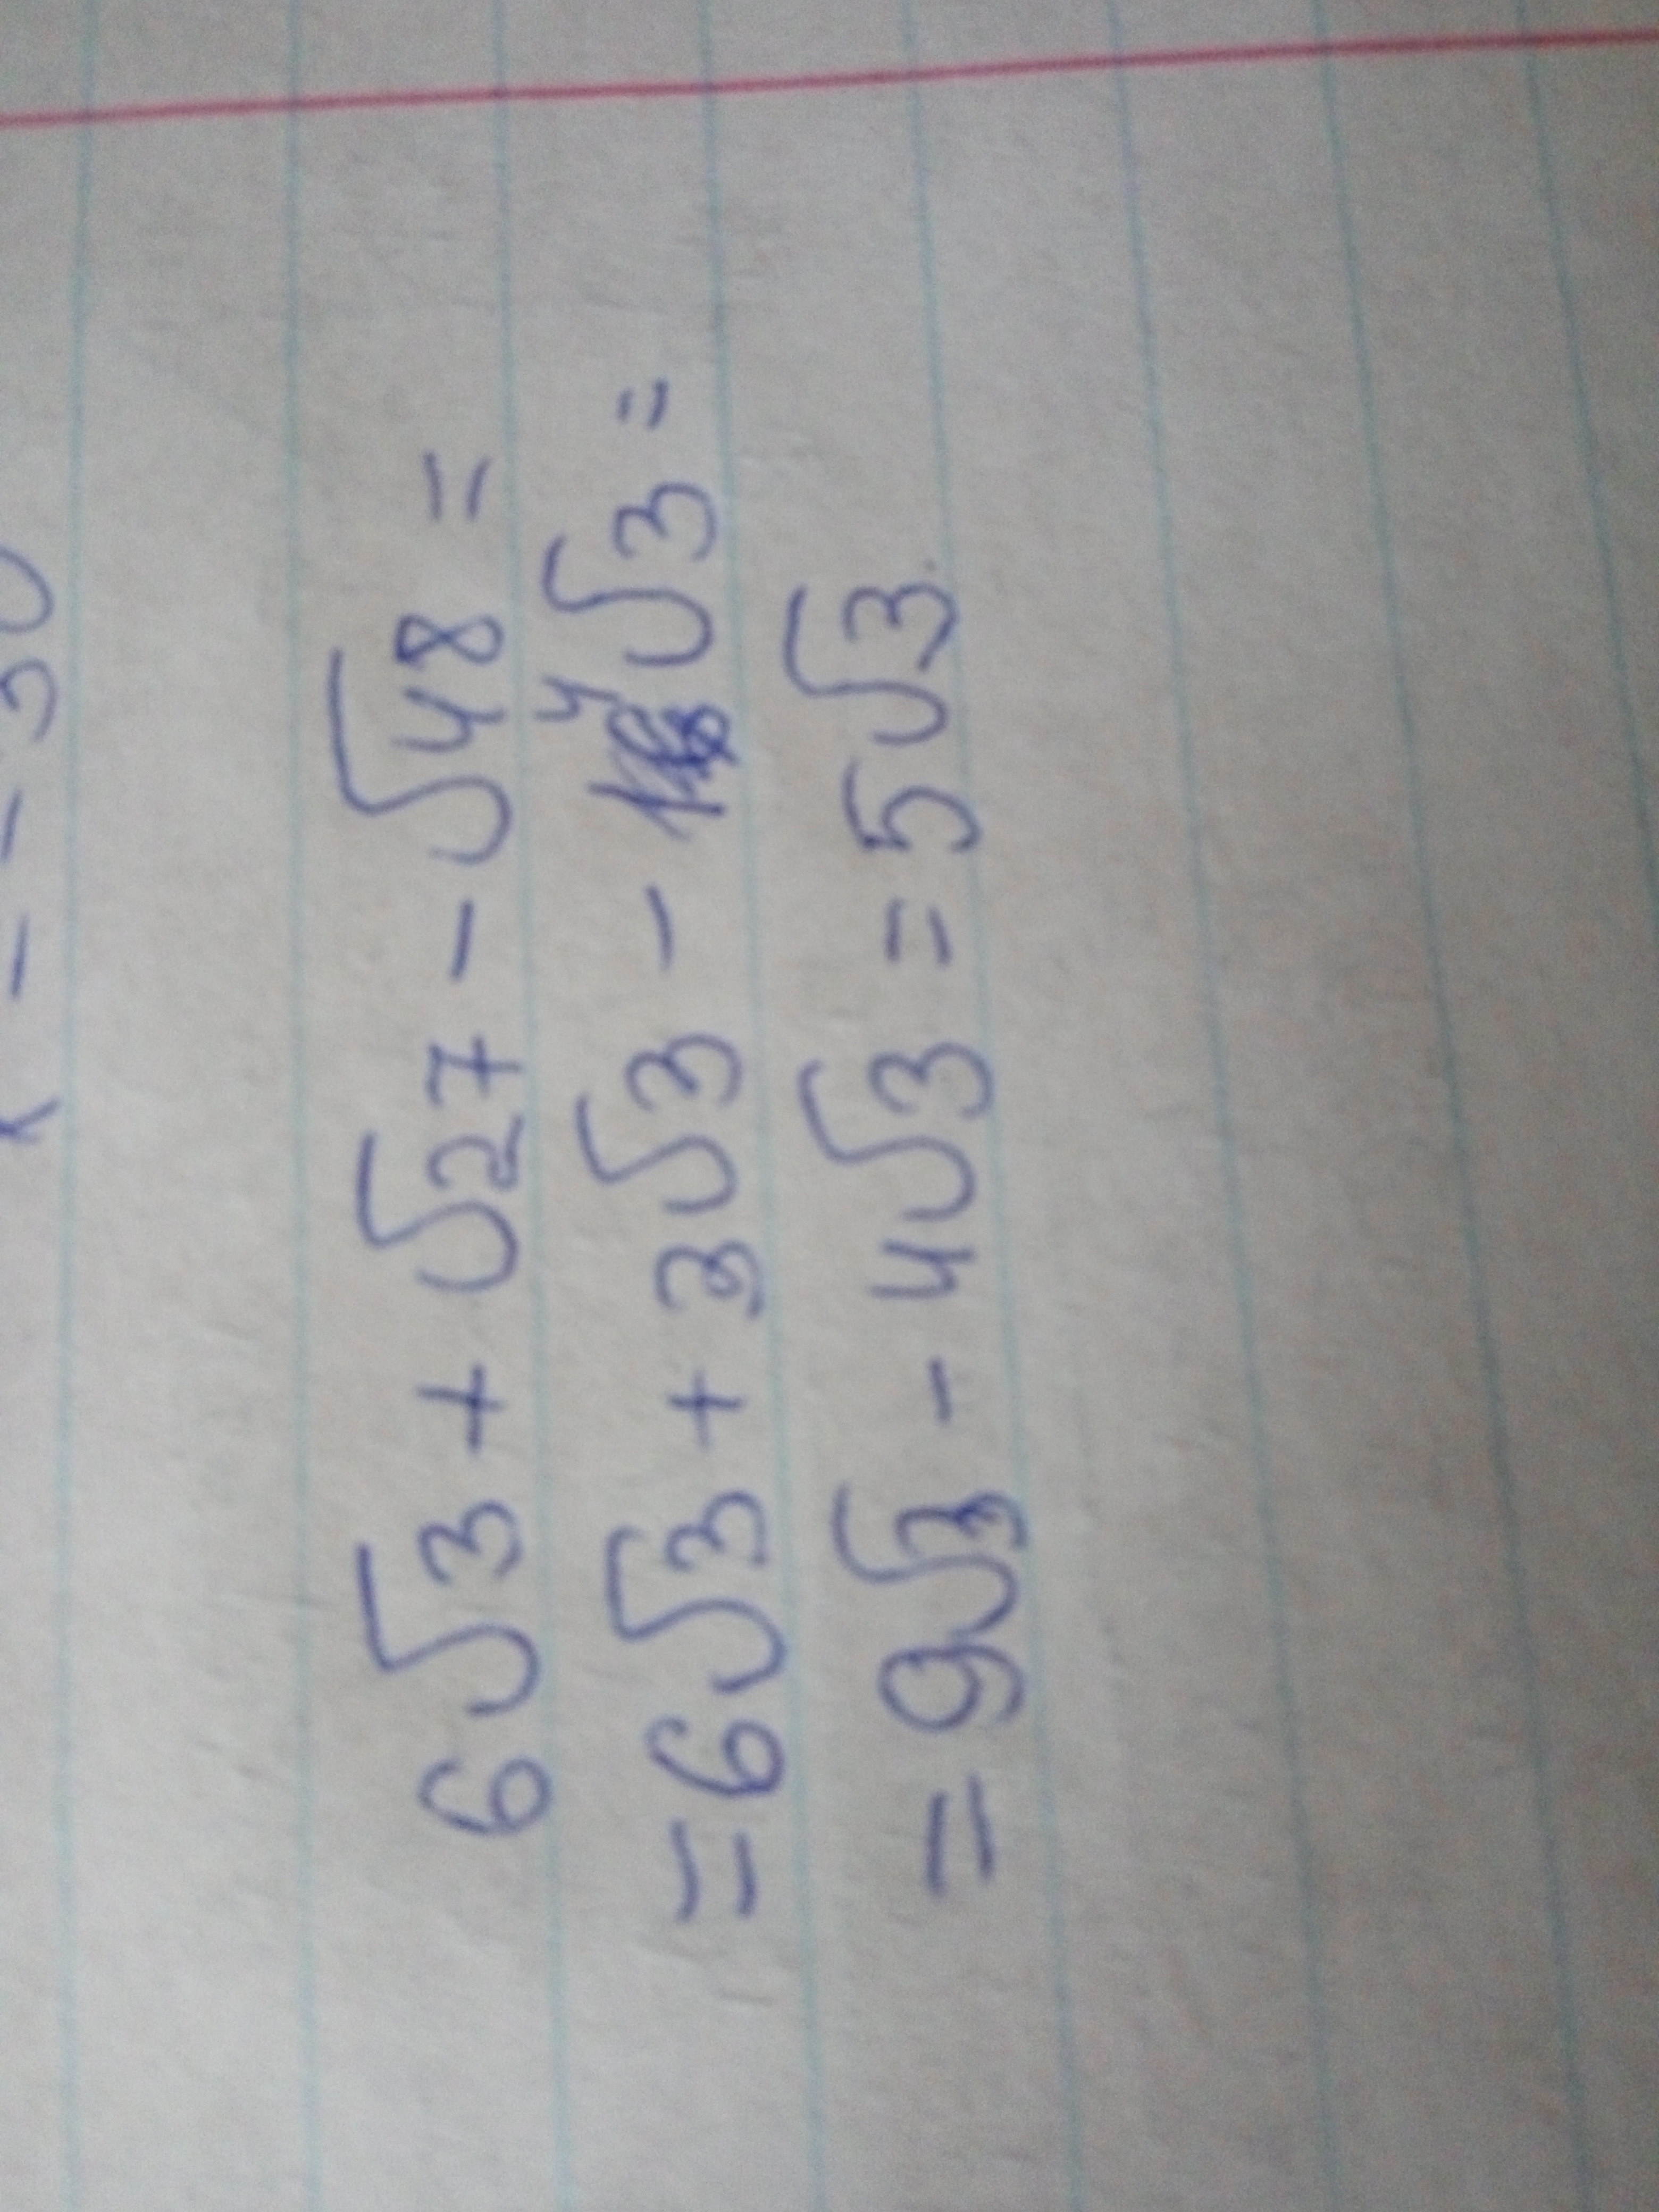 6√3 + √27 - √48 =
= 6√3 + 3√3 - 4√3 =
= 9√3 - 4√3 = 5√3